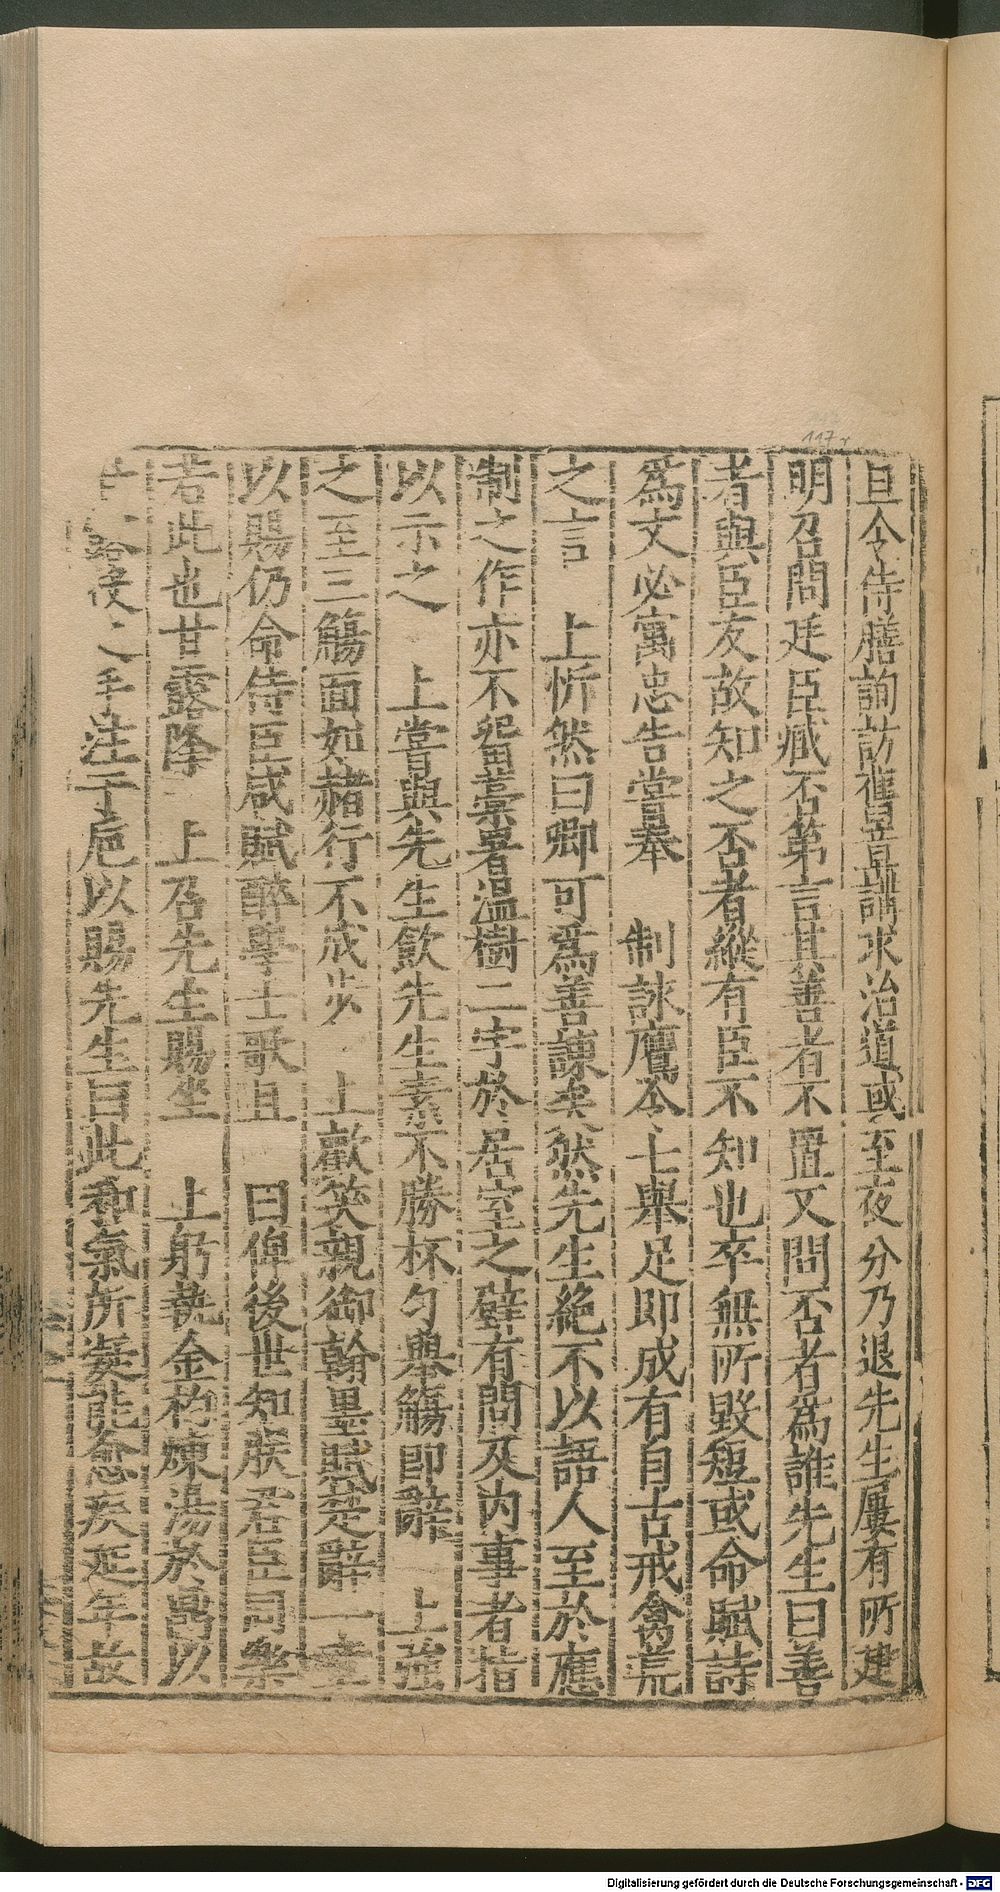 旦令侍膳詢訪舊章講求治道或至夜分乃退先生屢有所建
明召問廷臣臧否第言其善者不置又問否者爲誰先生曰善
者與臣友故知之否者縱有臣不知也卒無所毀短或命賦詩
爲文必寓忠告嘗奉 制詠鷹令七舉足即成有自古戒禽荒
之言 上忻然曰卿可爲善諫矣然先生絕不以語人至於應
制之作亦不留藁署溫樹二字於居室之壁有問及內事者指
以示之 上嘗與先生飲先生素不勝杯勺舉觴即辭 上強
之至三觴面如赭行不成步 上歡笑親御翰墨賦楚辭一章
以賜仍命侍臣咸賦醉學士歌且 曰俾後世知朕君臣同樂
若此也甘露降 上召先生賜坐 上躬執金杓煉湯於鬲以
之手注于巵以賜先生曰此和氣所凝能愈疾延年故
117r
Digitalisierung gefördert durch die Deutsche Forschungsgemeinschaft - DFG